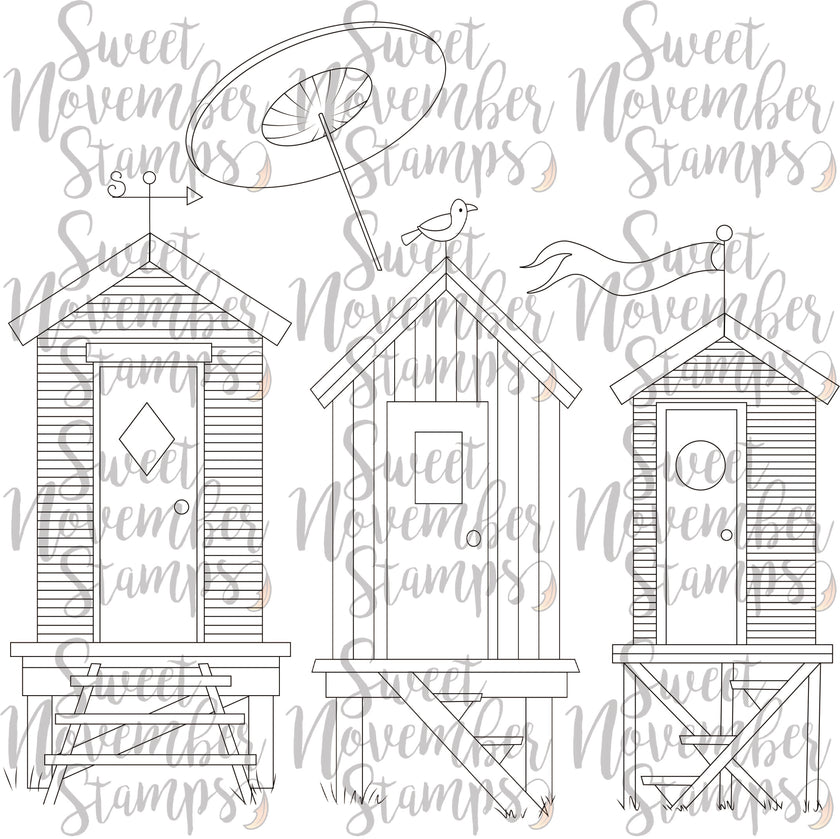 Sweet Sweet Sweet
November November November
Stamps Stamps Stamps
S
Sweet Sweet Sweet
November November November
Stamps Stamps Stamps
Sweet Sweet Sweet
November November November
Stamps Stamps Stamps
Sweet Sweet Sweet
November November November
Stamps Stamps Stamps